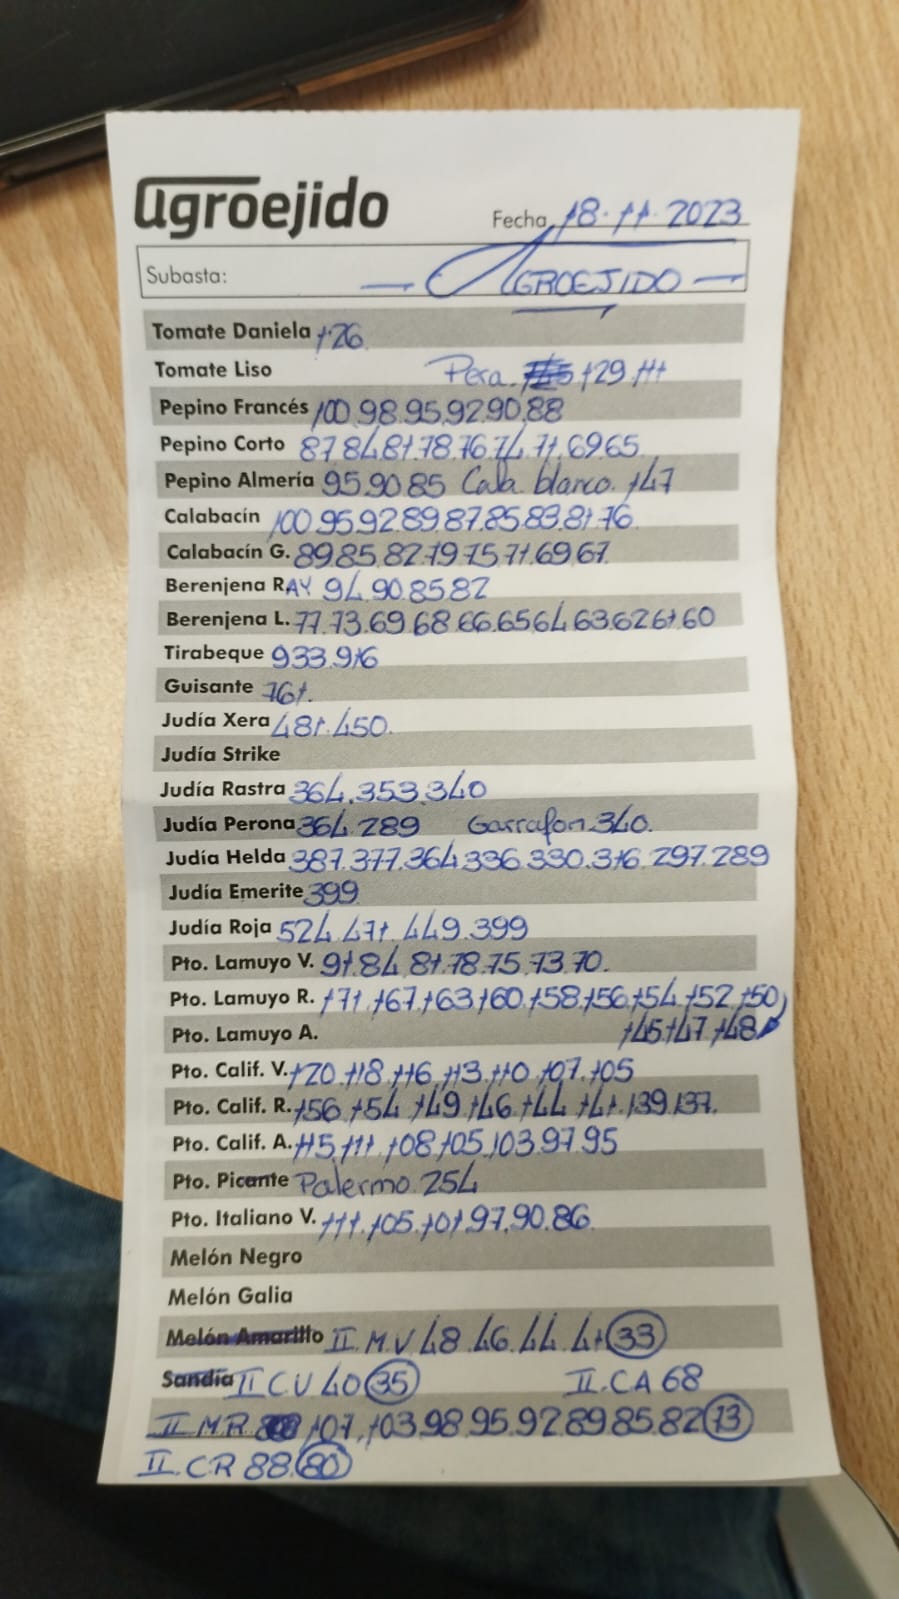 agroejido
Fecha 18·11·2023
Subasta: — AGROEJIDO —
Tomate Daniela 126
Tomate Liso Pera. 129.111
Pepino Francés 100.98.95.92.90.88
Pepino Corto 87.84.81.78.76.74.71.69.65
Pepino Almería 95.90.85 Cala. blanco. 147
Calabacín 100.95.92.89.87.85.83.81.76.
Calabacín G. 89.85.82.79.75.71.69.67.
Berenjena RAY 94.90.85.82
Berenjena L. 77.73.69.68.66.65.64.63.62.61.60
Tirabeque 933.916
Guisante 761.
Judía Xera 481.450.
Judía Strike
Judía Rastra 364.353.340
Judía Perona 364.289 Garrafon.340.
Judía Helda 387.377.364.336.330.316.297.289
Judía Emerite 399
Judía Roja 524.471.449.399
Pto. Lamuyo V. 91.84.81.78.75.73.70.
Pto. Lamuyo R. 171.167.163.160.158.156.154.152.150
Pto. Lamuyo A. 145.147.148
Pto. Calif. V. 120.118.116.113.110.107.105
Pto. Calif. R. 156.154.149.146.144.141.139.137.
Pto. Calif. A. 115.111.108.105.103.97.95
Pto. Picante Palermo 254
Pto. Italiano V. 111.105.101.97.90.86.
Melón Negro
Melón Galia
Melón Amarillo II.M.V 48.46.44.41 33
Sandía II CV 40 35 II.CA 68
II M.R. 107.103.98.95.92.89.85.82 73
II.CR 88.80